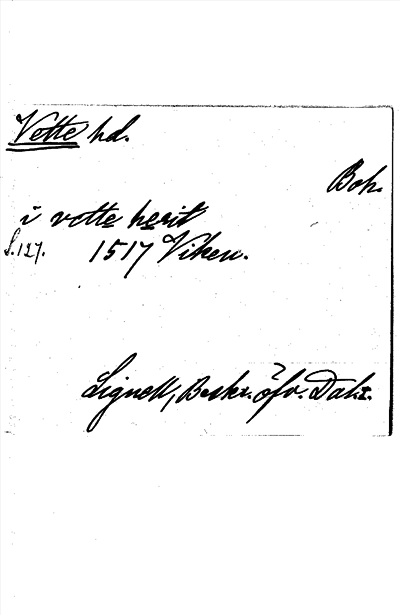 Vette hd.
Boh.
i vette herit
s. 127. 1517 Viken.
Lignell, Beskr. öfv. Dal. I.